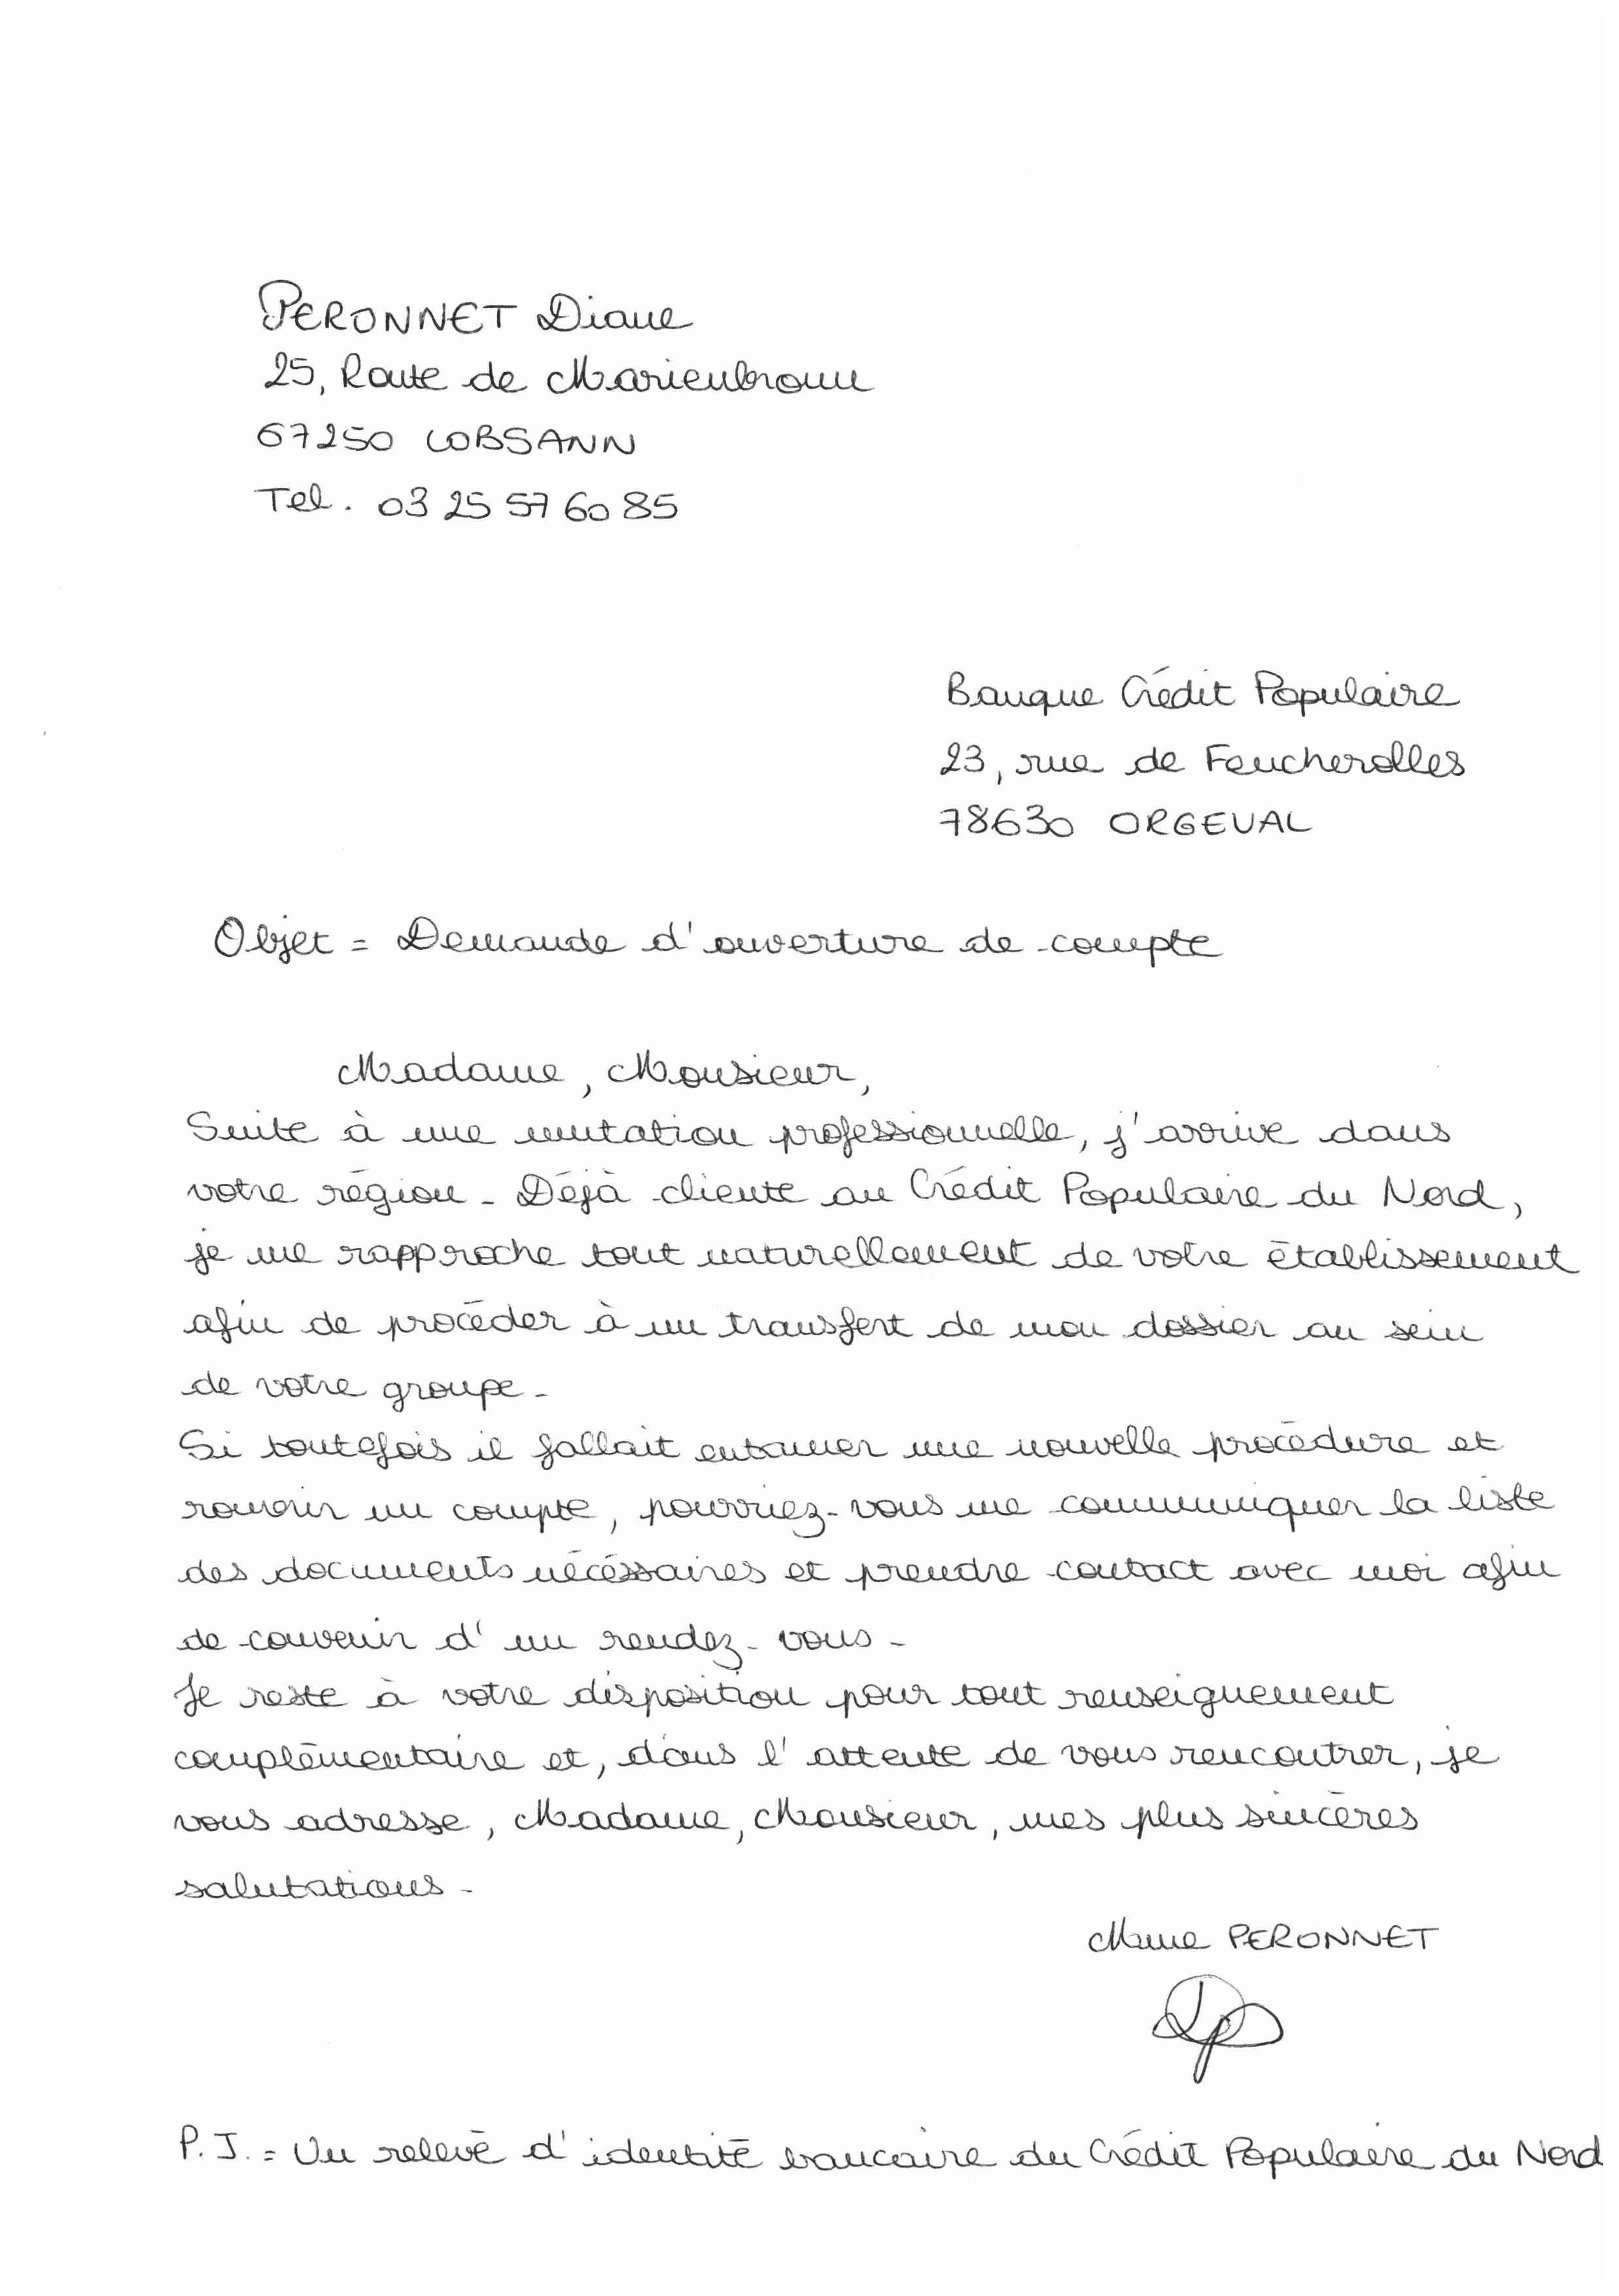 PERONNET Diane
25, Route de Marienbronn
67250 LOBSANN
Tel. 03 25 57 60 85
Banque Crédit Populaire
23, rue de Feucherolles
78630 ORGEVAL
Objet = Demande d'ouverture de compte
Madame, Monsieur,
Suite à une mutation professionnelle, j'arrive dans
votre région. Déjà cliente au Crédit Populaire du Nord,
je me rapproche tout naturellement de votre établissement
afin de procéder à un transfert de mon dossier au sein
de votre groupe.
Si toutefois il fallait entamer une nouvelle procédure et
rouvrir un compte, pourriez-vous me communiquer la liste
des documents nécéssaires et prendre contact avec moi afin
de convenir d'un rendez-vous.
Je reste à votre disposition pour tout renseignement
complémentaire et, dans l'attente de vous rencontrer, je
vous adresse, Madame, Monsieur, mes plus sincères
salutations.
Mme PERONNET
P.J. = Un relevé d'identité bancaire du Crédit Populaire du Nord